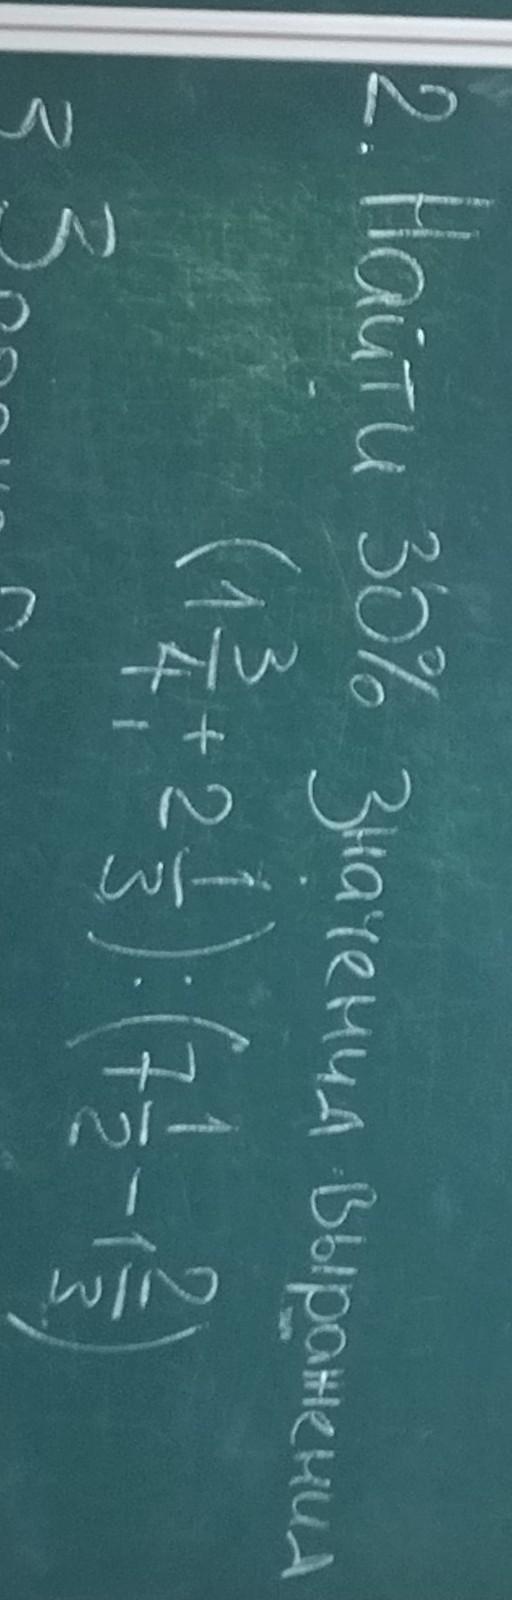 2. Найти 30% значения выражения
(1 3/4 + 2 1/3) : (7 1/2 - 1 2/3)
3